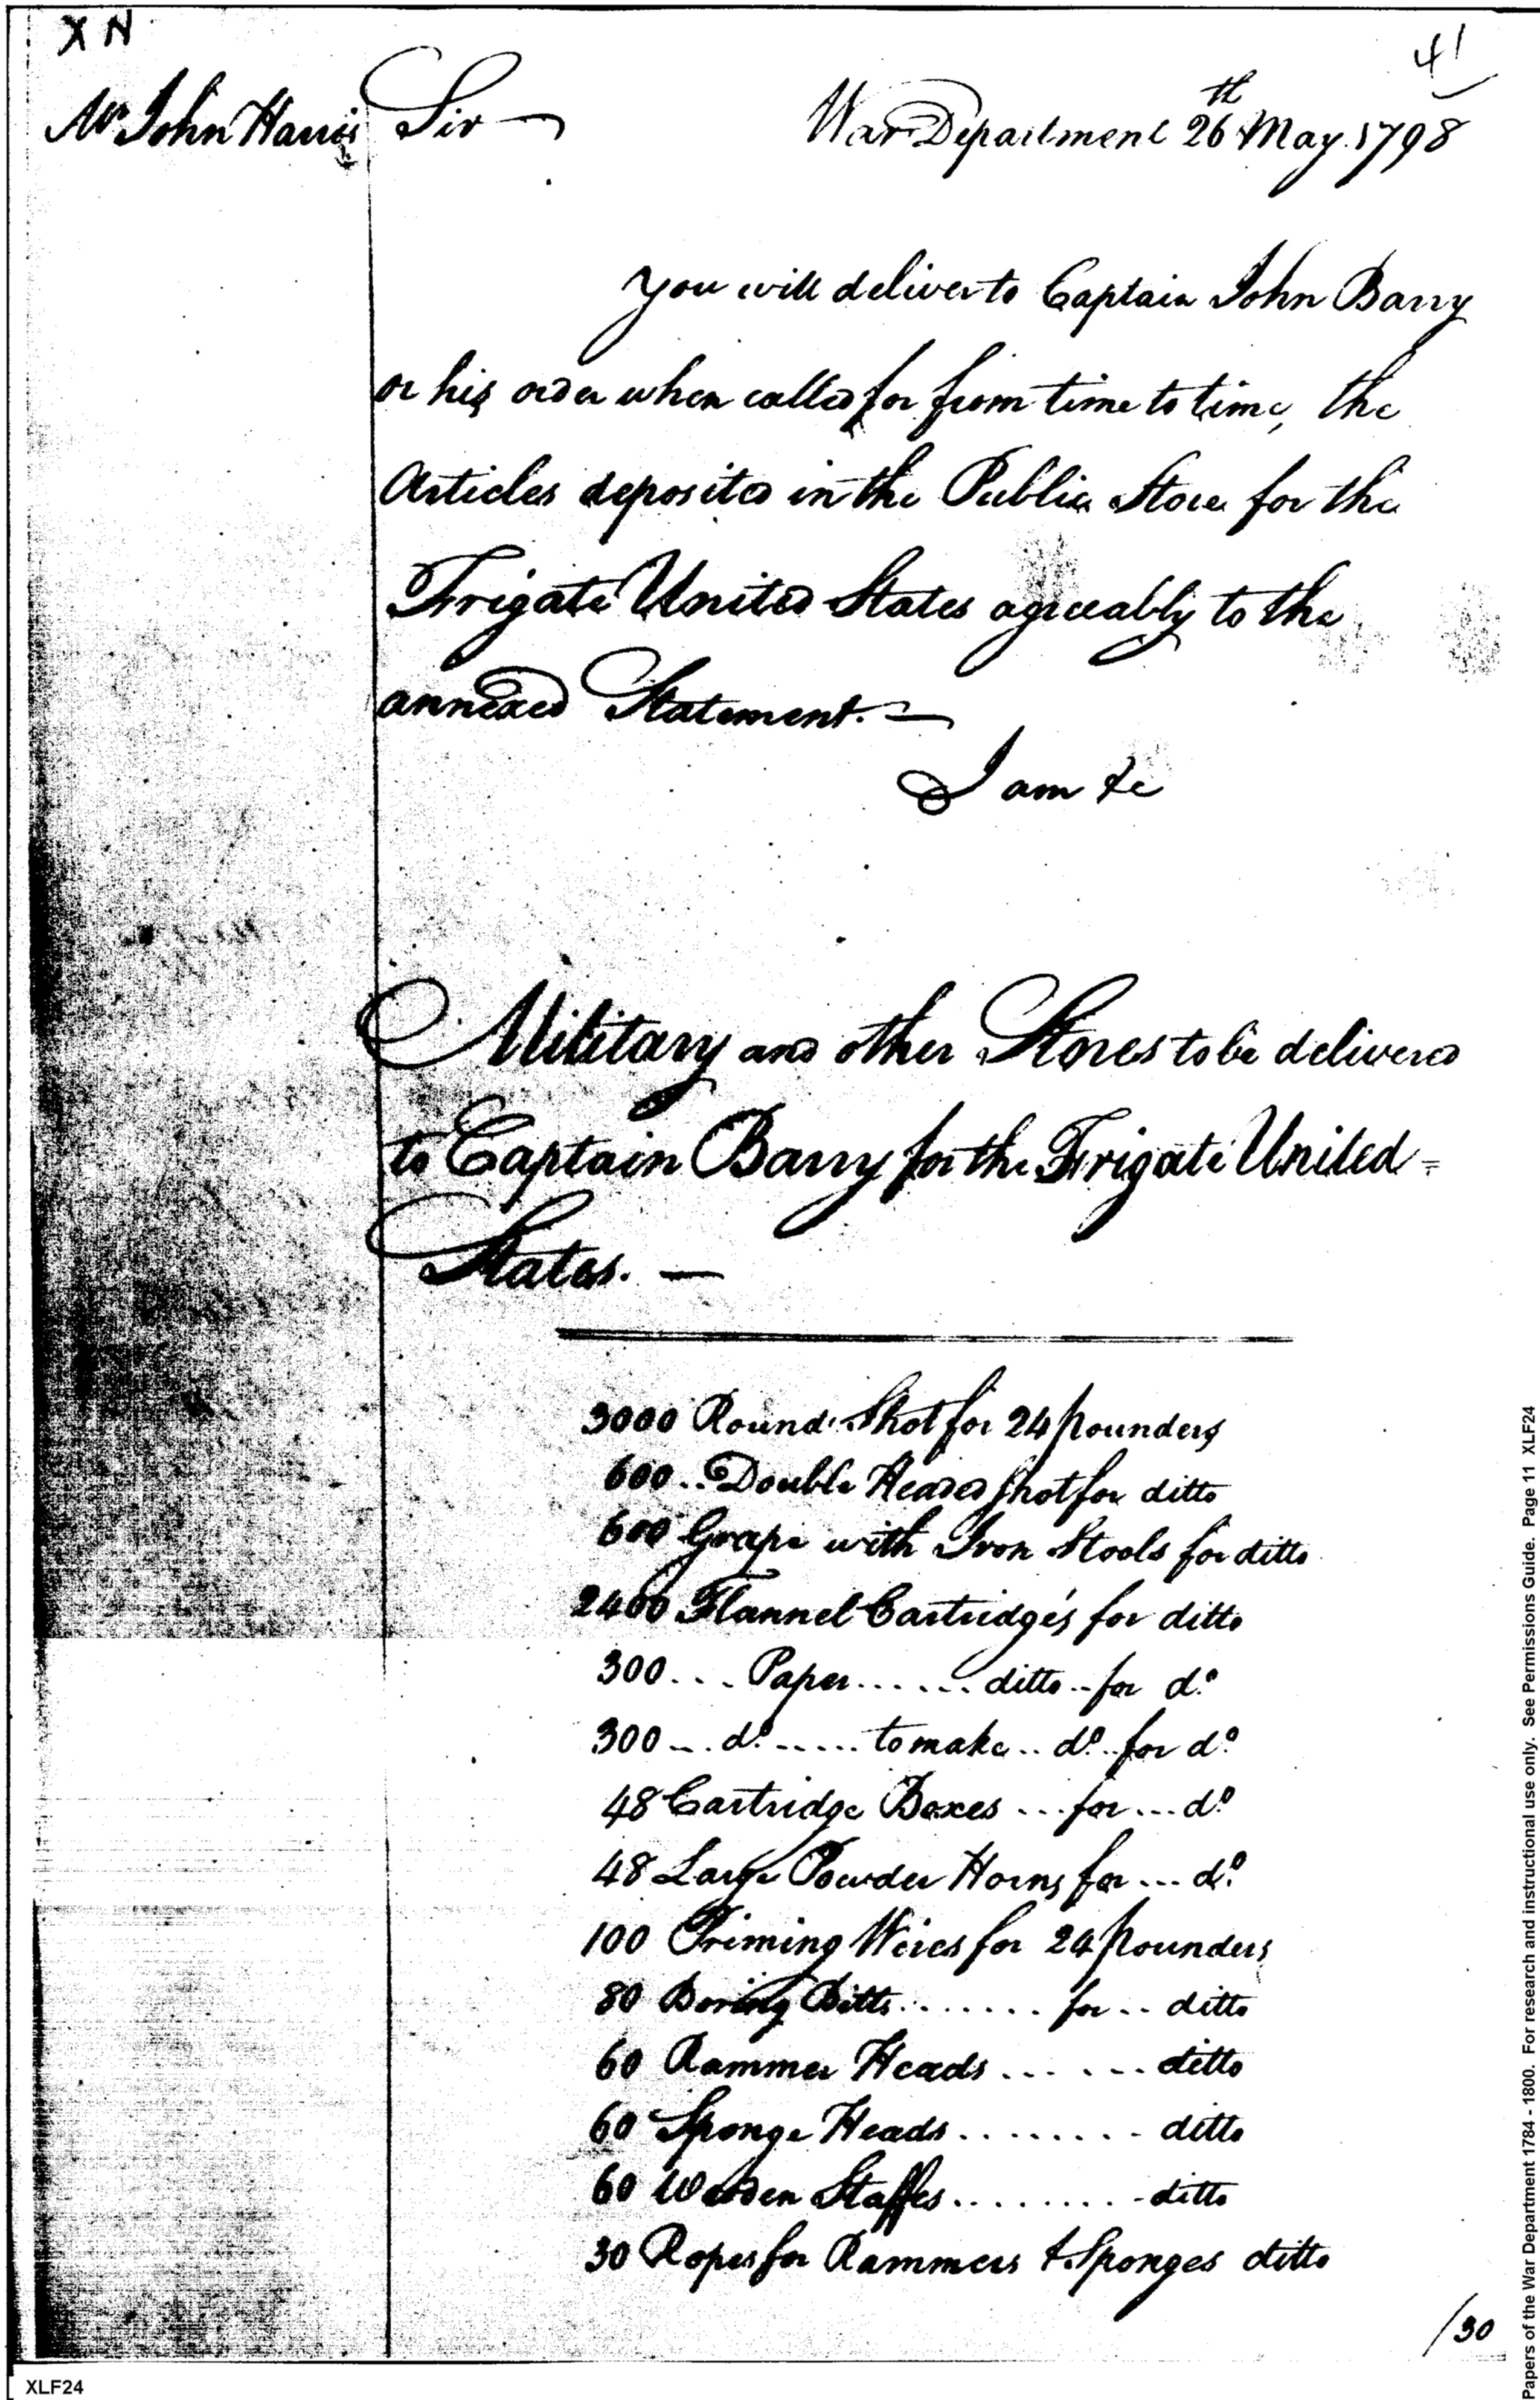 XN
41
Mr John Harris
Sir
War Department 26th May 1798
You will deliver to Captain John Barry
or his order when called for from time to time, the
Articles deposited in the Public Store for the
Frigate United States agreeably to the
annexed Statement.—
I am &c
Military and other Stores to be delivered
to Captain Barry for the Frigate United=
States. —
3000 Round Shot for 24 pounders
600.. Double Headed Shot for ditto
600 Grape with Iron Stools for ditto
2400 Flannel Cartridges for ditto
300... Paper...... ditto.. for do.
300... do...... to make.. do.. for do.
48 Cartridge Boxes ... for ... do.
48 Large Powder Horns for ... do.
100 Priming Wires for 24 pounders
80 Boring Bitts....... for.. ditto
60 Rammer Heads ...... ditto
60 Sponge Heads ........ ditto
60 Wooden Staffes ......... ditto
30 Ropes for Rammers & Sponges ditto
/30
XLF24
Papers of the War Department 1784 - 1800. For research and instructional use only. See Permissions Guide. Page 11 XLF24